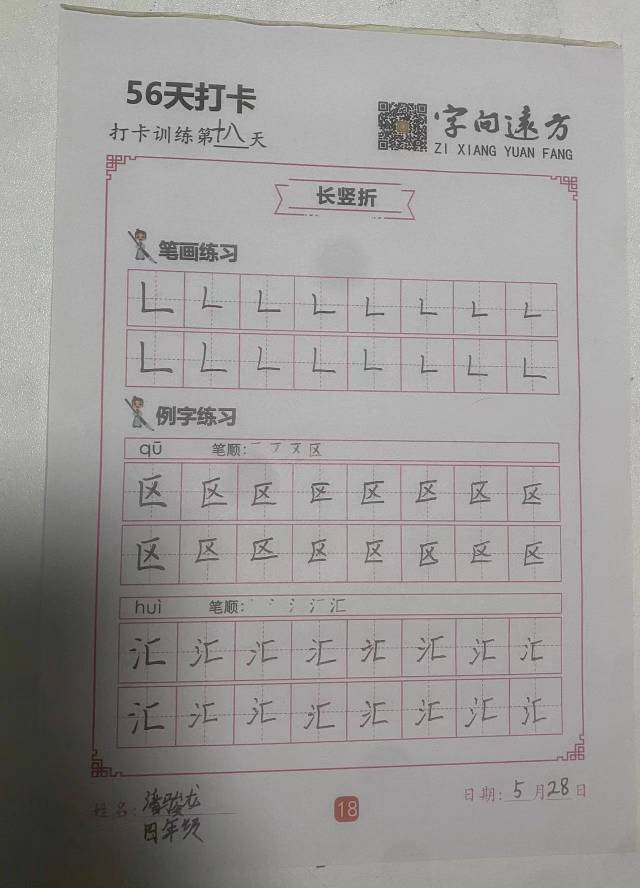 56天打卡
打卡训练第十八天
字向远方
ZI XIANG YUAN FANG
长竖折
笔画练习
例字练习
qū 笔顺: 一 丆 㐅 区
区 区 区 区 区 区 区 区
区 区 区 区 区 区 区 区
huì 笔顺: 丶 冫 氵 汇
汇 汇 汇 汇 汇 汇 汇 汇
汇 汇 汇 汇 汇 汇 汇 汇
姓名: 潘骏龙
四年级
18
日期: 5月28日